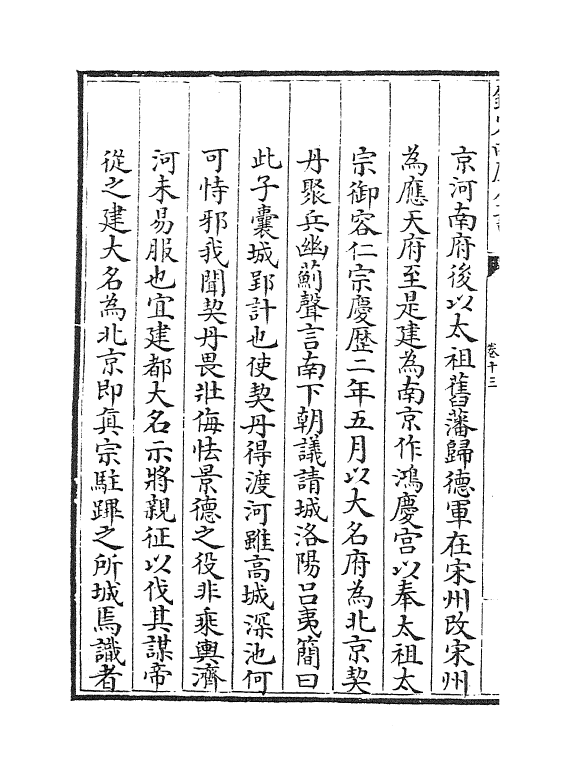 卷十三
京河南府後以太祖舊藩歸德軍在宋州改宋州
為應天府至是建為南京作鴻慶宫以奉太祖太
宗御容仁宗慶歷二年五月以大名府為北京契
丹聚兵幽薊聲言南下朝議請城洛陽吕夷簡曰
此子囊城郢計也使契丹得渡河雖高城深池何
可恃邪我聞契丹畏壯侮怯景德之役非乘輿濟
河未易服也宜建都大名示將親征以伐其謀帝
從之建大名為北京即真宗駐蹕之所城焉識者